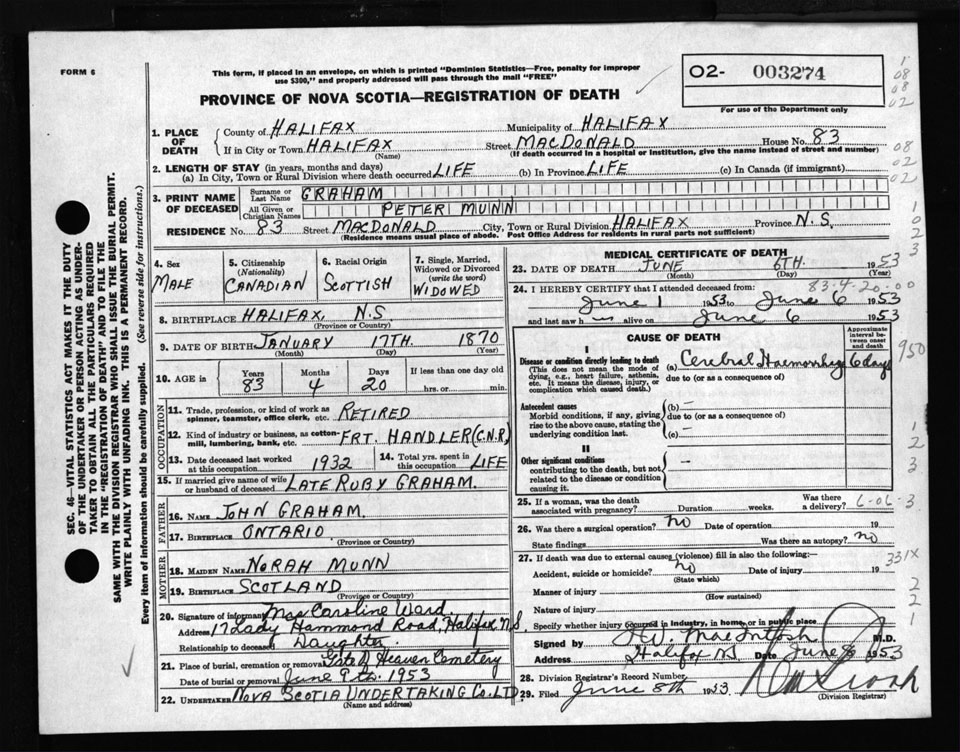 FORM 6
This form, if placed in an envelope, on which is printed "Dominion Statistics—Free, penalty for improper
use $300," and properly addressed will pass through the mail "FREE"
O2- 003274
For use of the Department only
PROVINCE OF NOVA SCOTIA—REGISTRATION OF DEATH
1. PLACE OF DEATH
County of HALIFAX Municipality of HALIFAX
If in City or Town HALIFAX Street MACDONALD House No. 83
(Name) (If death occurred in a hospital or institution, give the name instead of street and number)
2. LENGTH OF STAY (in years, months and days)
(a) In City, Town or Rural Division where death occurred LIFE (b) In Province LIFE (c) In Canada (if immigrant)
3. PRINT NAME OF DECEASED
Surname or Last Name GRAHAM
All Given or Christian Names PETER MUNN
RESIDENCE No. 83 Street MACDONALD City, Town or Rural Division HALIFAX Province N.S.
(Residence means usual place of abode. Post Office Address for residents in rural parts not sufficient)
4. Sex
MALE
5. Citizenship
(Nationality)
CANADIAN
6. Racial Origin
SCOTTISH
7. Single, Married, Widowed or Divorced
(write the word)
WIDOWED
8. BIRTHPLACE HALIFAX, N.S.
(Province or Country)
9. DATE OF BIRTH JANUARY 17TH. 1870
(Month) (Day) (Year)
10. AGE in Years Months Days If less than one day old
83 4 20 hrs. or min.
OCCUPATION
11. Trade, profession, or kind of work as
spinner, teamster, office clerk, etc. RETIRED
12. Kind of industry or business, as cotton-
mill, lumbering, bank, etc. FRT. HANDLER (C.N.R)
13. Date deceased last worked
at this occupation 1932
14. Total yrs. spent in
this occupation LIFE
15. If married give name of wife
or husband of deceased LATE RUBY GRAHAM.
FATHER
16. NAME JOHN GRAHAM
17. BIRTHPLACE ONTARIO
(Province or Country)
MOTHER
18. MAIDEN NAME NORAH MUNN
19. BIRTHPLACE SCOTLAND
(Province or Country)
20. Signature of informant Mrs Caroline Ward
Address 17 Lady Hammond Road, Halifax N.S.
Relationship to deceased Daughter
21. Place of burial, cremation or removal Gate of Heaven Cemetery
Date of burial or removal June 9th. 1953
22. UNDERTAKER NOVA SCOTIA UNDERTAKING CO. LTD
(Name and address)
MEDICAL CERTIFICATE OF DEATH
23. DATE OF DEATH JUNE 6TH. 1953
(Month) (Day) (Year)
83-4-20-00
24. I HEREBY CERTIFY that I attended deceased from:
June 1 1953 to June 6 1953
and last saw him alive on June 6 1953
CAUSE OF DEATH
Approximate interval between onset and death
I
Disease or condition directly leading to death
(This does not mean the mode of
dying, e.g., heart failure, asthenia,
etc. It means the disease, injury, or
complication which caused death.)
(a) Cerebral Haemorrhage 6 days
due to (or as a consequence of)
Antecedent causes
Morbid conditions, if any, giving
rise to the above cause, stating the
underlying condition last.
(b) —
due to (or as a consequence of)
(c) —
II
Other significant conditions
contributing to the death, but not
related to the disease or condition
causing it.
—
25. If a woman, was the death
associated with pregnancy. Duration weeks. Was there a delivery?
6-06-3
26. Was there a surgical operation? no Date of operation 19
State findings Was there an autopsy? no
27. If death was due to external causes (violence) fill in also the following:
Accident, suicide or homicide? no Date of injury 19
(State which)
331X
Manner of injury
(How sustained)
Nature of injury
Specify whether injury occurred in industry, in home, or in public place
Signed by MacIntosh M.D.
Address Halifax NS Date June 8 1953
28. Division Registrar's Record Number
29. Filed June 8th 1953
(Division Registrar)
SEC. 46—VITAL STATISTICS ACT MAKES IT THE DUTY
OF THE UNDERTAKER OR PERSON ACTING AS UNDER-
TAKER TO OBTAIN ALL THE PARTICULARS REQUIRED
IN THE "REGISTRATION OF DEATH" AND TO FILE THE
SAME WITH THE DIVISION REGISTRAR WHO SHALL ISSUE THE BURIAL PERMIT.
WRITE PLAINLY WITH UNFADING INK. THIS IS A PERMANENT RECORD.
Every item of information should be carefully supplied. (See reverse side for instructions.)
1
08
08
02
08
02
02
1
0
2
3
950
1
2
3
2
2
1